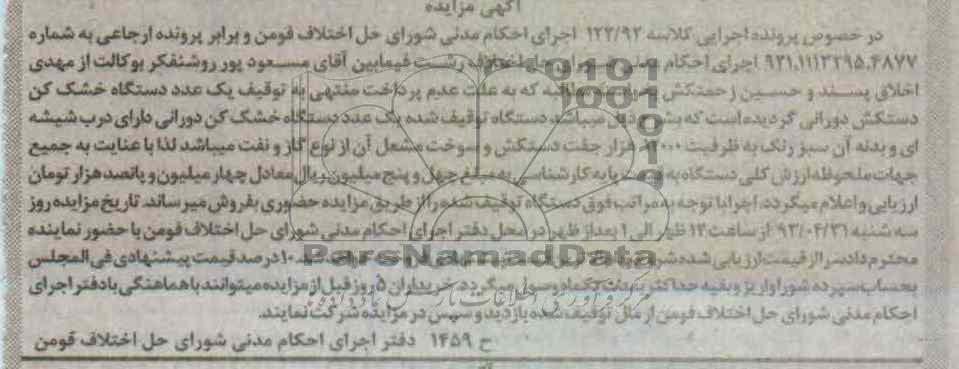 آگهی مزایده
در خصوص پرونده اجرایی کلاسه ۱۲۳/۹۲ اجرای احکام مدنی شورای حل اختلاف فومن و برابر پرونده ارجاعی به شماره
۹۳۱،۱۱۱۳۲۹۵،۴۸۷۷ اجرای احکام شورای حل اختلاف رشت فیمابین آقای مسعود پور روشنفکر بوکالت از مهدی
اخلاق پسند و حسین زحمتکش که به علت عدم پرداخت منتهی به توقیف یک عدد دستگاه خشک کن
دستکش دورانی گردیده است که بشرح ذیل میباشد دستگاه توقیف شده یک عدد دستگاه خشک کن دورانی دارای درب شیشه
ای و بدنه آن سبز رنگ به ظرفیت هزار جفت دستکش و سوخت مشعل آن از نوع گاز و نفت میباشد لذا با عنایت به جمیع
جهات ملحوظه ارزش کلی دستگاه به پایه کارشناسی به مبلغ چهل و پنج میلیون ریال معادل چهار میلیون و پانصد هزار تومان
ارزیابی و اعلام میگردد. اجرا با توجه به مراتب فوق دستگاه توقیف شده را از طریق مزایده حضوری بفروش میرساند. تاریخ مزایده روز
سه شنبه ۹۳/۰۴/۳۱ از ساعت ۱۲ ظهر الی ۱ بعد از ظهر در محل دفتر اجرای احکام مدنی شورای حل اختلاف فومن با حضور نماینده
محترم دادسرا از قیمت ارزیابی شده ۱۰ درصد قیمت پیشنهادی فی المجلس
بحساب سپرده شورا واریز و بقیه حداکثر یکماه وصول میگردد. خریداران ۵ روز قبل از مزایده میتوانند با هماهنگی با دفتر اجرای
احکام مدنی شورای حل اختلاف فومن از مال توقیف شده بازدید و سپس در مزایده شرکت نمایند.
ح ۱۴۵۹ دفتر اجرای احکام مدنی شورای حل اختلاف فومن
ParsNamadData
مرکز فرآوری اطلاعات پارس نماد داده ها